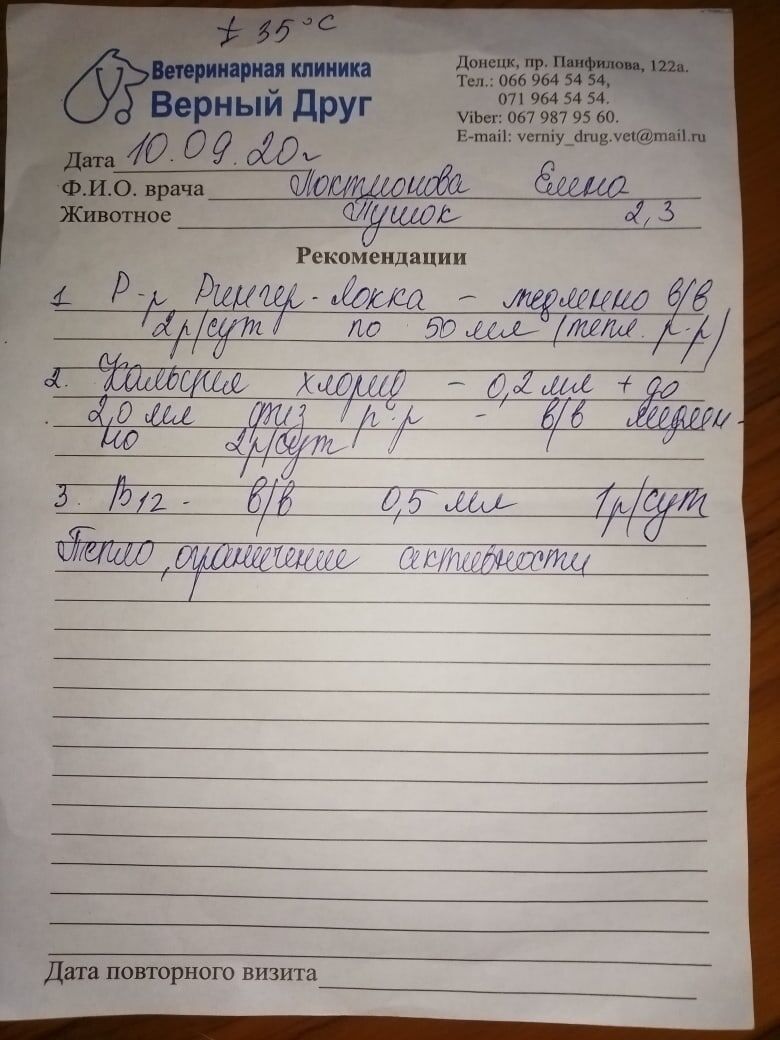 t 35°C
Ветеринарная клиника
Верный Друг
Донецк, пр. Панфилова, 122а.
Тел.: 066 964 54 54,
071 964 54 54.
Viber: 067 987 95 60.
E-mail: verniy_drug.vet@mail.ru
Дата 10.09.20г
Ф.И.О. врача Локтионова Елена
Животное Пушок 2,3
Рекомендации
1 Р-р Рингер-Локка - медленно в/в
2р/сут по 50 мл (тепл. р-р)
2. Кальция хлорид - 0,2 мл + до
2,0 мл физ р-р - в/в медлен-
но 2р/сут
3. В12 - в/в 0,5 мл 1р/сут
Тепло, ограничение активности
Дата повторного визита